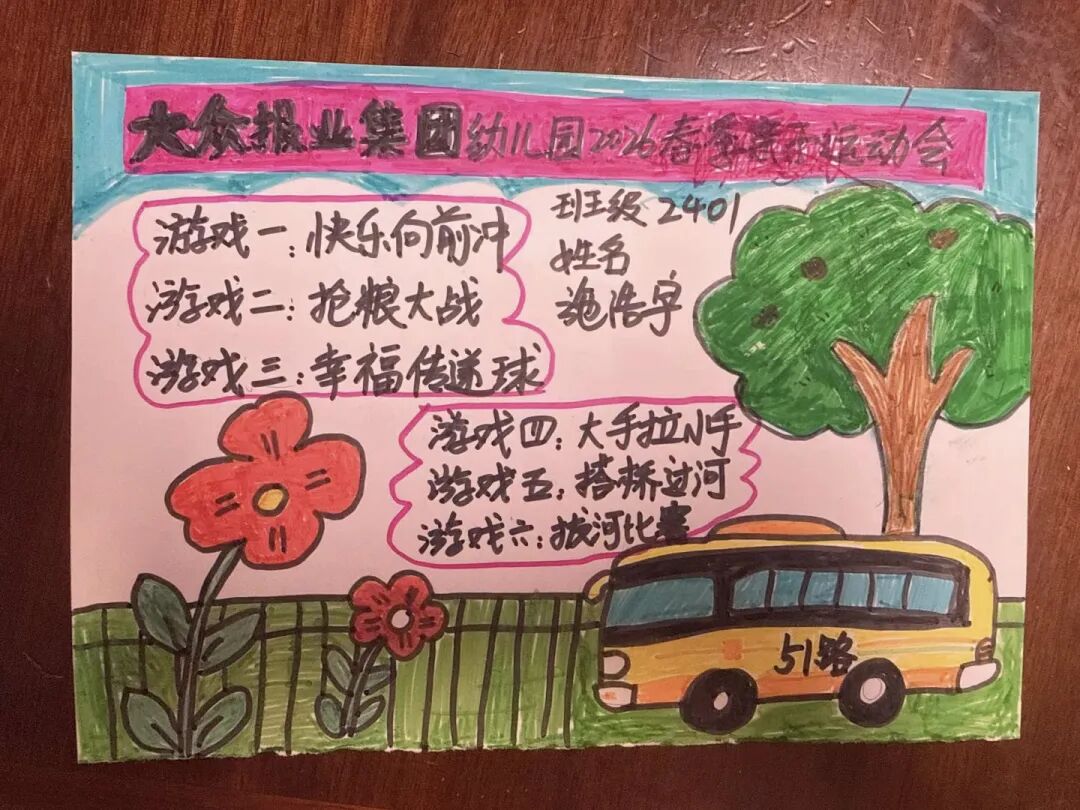 大众报业集团幼儿园2026春季运动会
班级 2401
姓名
浩宇
游戏一:快乐向前冲
游戏二:抢粮大战
游戏三:幸福传递球
游戏四:大手拉小手
游戏五:搭桥过河
游戏六:拔河比赛
51路